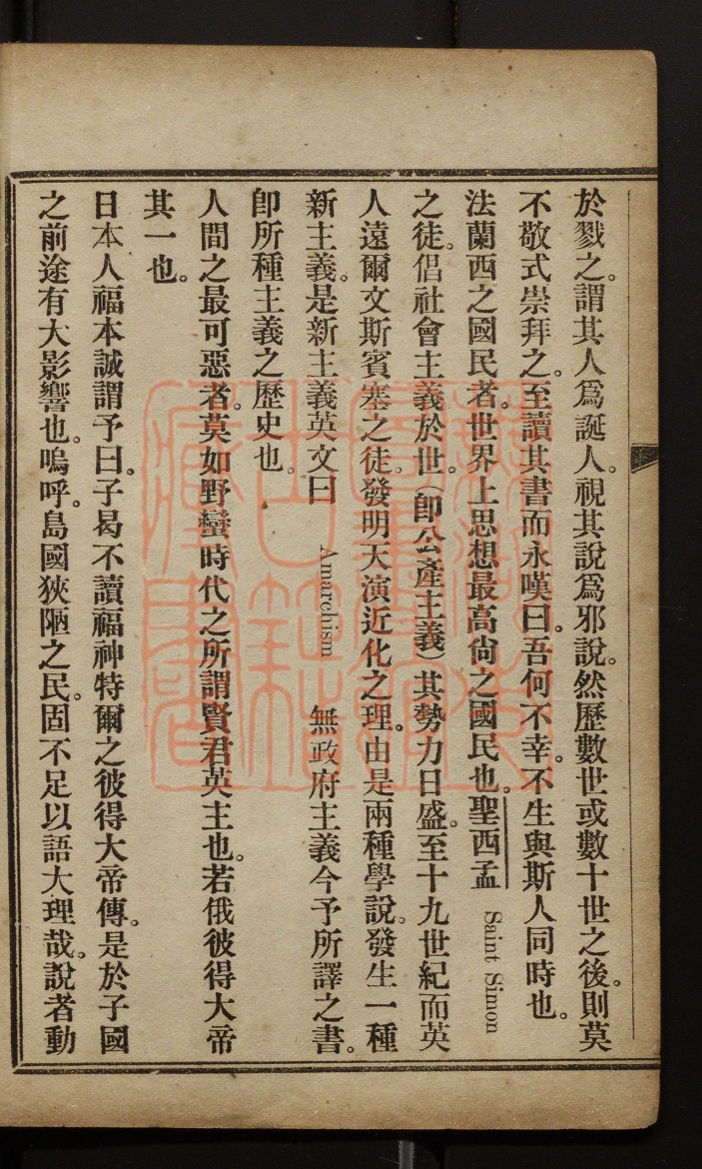 於戮之。謂其人爲誕人。視其說爲邪說。然歷數世或數十世之後。則莫
不敬式崇拜之。至讀其書而永嘆曰。吾何不幸。不生與斯人同時也。
法蘭西之國民者。世界上思想最高尙之國民也。聖西孟 Saint Simon
之徒。倡社會主義於世。(卽公產主義)其勢力日盛。至十九世紀而英
人遠爾文斯賓塞之徒。發明天演近化之理。由是兩種學說。發生一種
新主義。是新主義英文曰 Amarchism 無政府主義今予所譯之書。
卽所種主義之歷史也。
人間之最可惡者。莫如野蠻時代之所謂賢君英主也。若俄彼得大帝
其一也。
日本人福本誠謂予曰。子曷不讀福神特爾之彼得大帝傳。是於子國
之前途有大影響也。嗚呼。島國狹陋之民。固不足以語大理哉。說者動